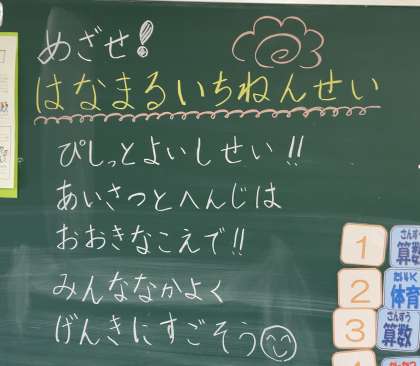 めざせ!
はなまるいちねんせい
ぴしっとよいしせい!!
あいさつとへんじは
おおきなこえで!!
みんななかよく
げんきにすごそう
1
さんすう
算数
2
たいいく
体育
3
さんすう
算数